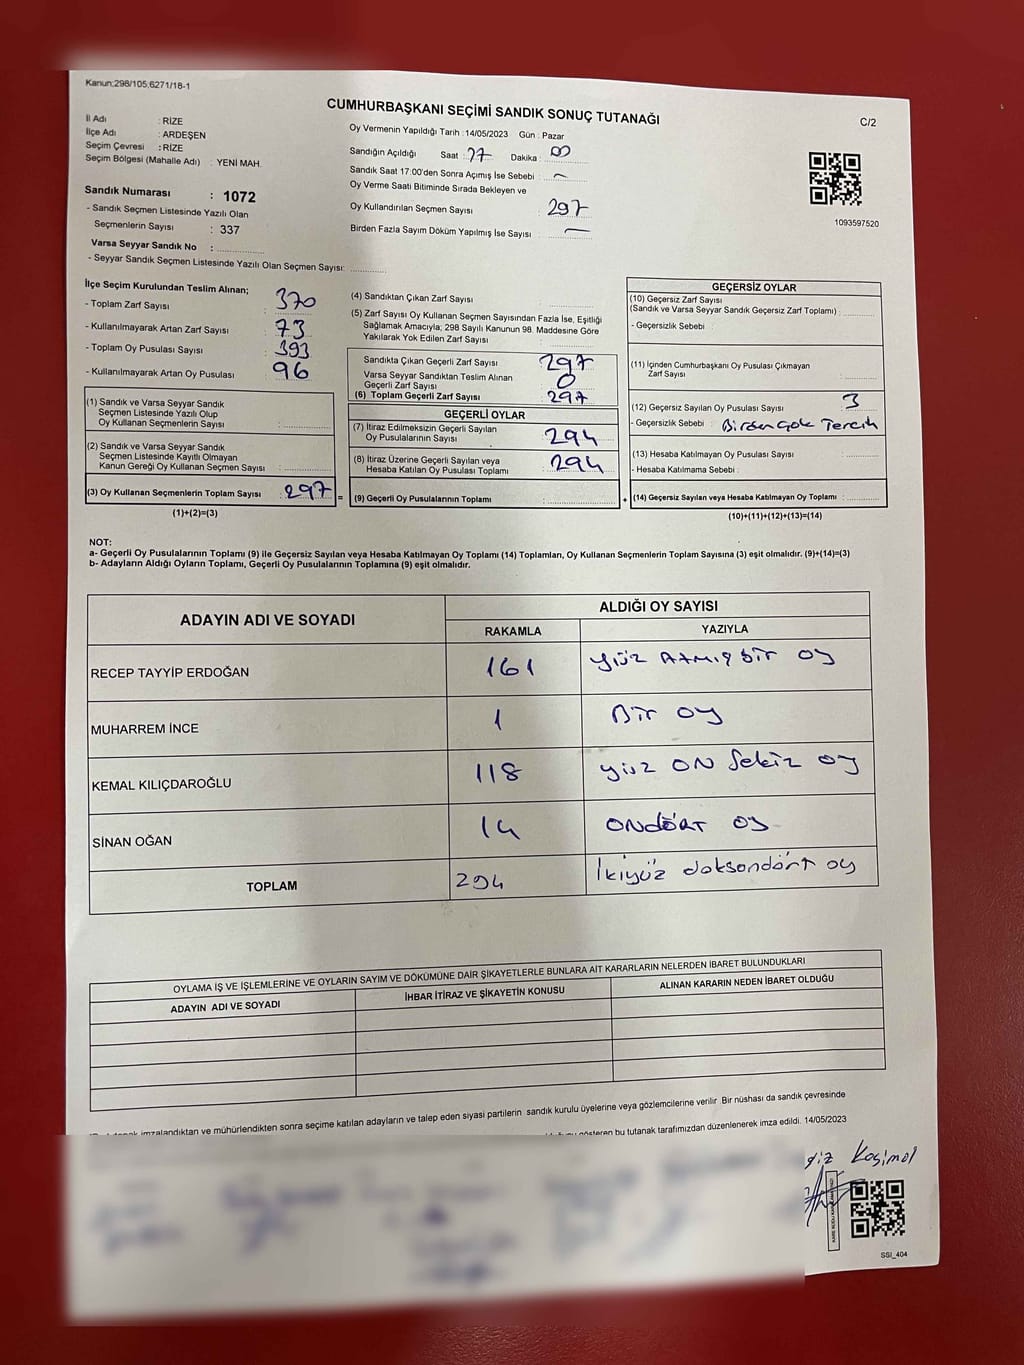 Kanun;298/105;6271/18-1
CUMHURBAŞKANI SEÇİMİ SANDIK SONUÇ TUTANAĞI
C/2
İl Adı : RİZE
İlçe Adı : ARDEŞEN
Seçim Çevresi : RİZE
Seçim Bölgesi (Mahalle Adı) : YENİ MAH.
Sandık Numarası : 1072
- Sandık Seçmen Listesinde Yazılı Olan
Seçmenlerin Sayısı : 337
Varsa Seyyar Sandık No :
- Seyyar Sandık Seçmen Listesinde Yazılı Olan Seçmen Sayısı:
Oy Vermenin Yapıldığı Tarih : 14/05/2023 Gün : Pazar
Sandığın Açıldığı Saat : 17 Dakika : 00
Sandık Saat 17:00'den Sonra Açımış İse Sebebi : –
Oy Verme Saati Bitiminde Sırada Bekleyen ve
Oy Kullandırılan Seçmen Sayısı : 297
Birden Fazla Sayım Döküm Yapılmış İse Sayısı : –
1093597520
İlçe Seçim Kurulundan Teslim Alınan;
- Toplam Zarf Sayısı : 370
- Kullanılmayarak Artan Zarf Sayısı : 73
- Toplam Oy Pusulası Sayısı : 393
- Kullanılmayarak Artan Oy Pusulası : 96
(1) Sandık ve Varsa Seyyar Sandık
Seçmen Listesinde Yazılı Olup
Oy Kullanan Seçmenlerin Sayısı :
(2) Sandık ve Varsa Seyyar Sandık
Seçmen Listesinde Kayıtlı Olmayan
Kanun Gereği Oy Kullanan Seçmen Sayısı :
(3) Oy Kullanan Seçmenlerin Toplam Sayısı : 297 =
(1)+(2)=(3)
(4) Sandıktan Çıkan Zarf Sayısı :
(5) Zarf Sayısı Oy Kullanan Seçmen Sayısından Fazla İse, Eşitliği
Sağlamak Amacıyla; 298 Sayılı Kanunun 98. Maddesine Göre
Yakılarak Yok Edilen Zarf Sayısı :
Sandıkta Çıkan Geçerli Zarf Sayısı : 297
Varsa Seyyar Sandıktan Teslim Alınan
Geçerli Zarf Sayısı : 0
(6) Toplam Geçerli Zarf Sayısı : 297
GEÇERLİ OYLAR
(7) İtiraz Edilmeksizin Geçerli Sayılan
Oy Pusulalarının Sayısı : 294
(8) İtiraz Üzerine Geçerli Sayılan veya
Hesaba Katılan Oy Pusulası Toplamı : 294
(9) Geçerli Oy Pusulalarının Toplamı : +
GEÇERSİZ OYLAR
(10) Geçersiz Zarf Sayısı
(Sandık ve Varsa Seyyar Sandık Geçersiz Zarf Toplamı) :
- Geçersizlik Sebebi
(11) İçinden Cumhurbaşkanı Oy Pusulası Çıkmayan
Zarf Sayısı :
(12) Geçersiz Sayılan Oy Pusulası Sayısı : 3
- Geçersizlik Sebebi : Birden Çok Tercih
(13) Hesaba Katılmayan Oy Pusulası Sayısı :
- Hesaba Katılmama Sebebi :
(14) Geçersiz Sayılan veya Hesaba Katılmayan Oy Toplamı :
(10)+(11)+(12)+(13)=(14)
NOT:
a- Geçerli Oy Pusulalarının Toplamı (9) ile Geçersiz Sayılan veya Hesaba Katılmayan Oy Toplamı (14) Toplamları, Oy Kullanan Seçmenlerin Toplam Sayısına (3) eşit olmalıdır. (9)+(14)=(3)
b- Adayların Aldığı Oyların Toplamı, Geçerli Oy Pusulalarının Toplamına (9) eşit olmalıdır.
ADAYIN ADI VE SOYADI
ALDIĞI OY SAYISI
RAKAMLA YAZIYLA
RECEP TAYYİP ERDOĞAN 161 yüz Atmış bir oy
MUHARREM İNCE 1 Bir oy
KEMAL KILIÇDAROĞLU 118 yüz ON Sekiz oy
SİNAN OĞAN 14 ONdört oy
TOPLAM 294 İkiyüz doksandört oy
OYLAMA İŞ VE İŞLEMLERİNE VE OYLARIN SAYIM VE DÖKÜMÜNE DAİR ŞİKAYETLERLE BUNLARA AİT KARARLARIN NELERDEN İBARET BULUNDUKLARI
ADAYIN ADI VE SOYADI İHBAR İTİRAZ VE ŞİKAYETİN KONUSU ALINAN KARARIN NEDEN İBARET OLDUĞU
imzalandıktan ve mühürlendikten sonra seçime katılan adayların ve talep eden siyasi partilerin sandık kurulu üyelerine veya gözlemcilerine verilir. Bir nüshası da sandık çevresinde
gösteren bu tutanak tarafımızdan düzenlenerek imza edildi. 14/05/2023
SSI_404